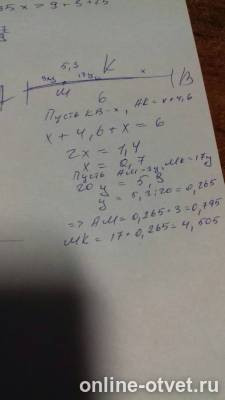 35x > 9 + 3 + 25
5,3 K
3y 17y x
M B
6
Пусть KB-x, AK=x+4,6
x+4,6+x=6
2x=1,4
x=0,7
Пусть AM-3y, MK=17y
20y=5,3
y=5,3:20=0,265
=> AM=0,265*3=0,795
MK=17*0,265=4,505
online-otvet.ru